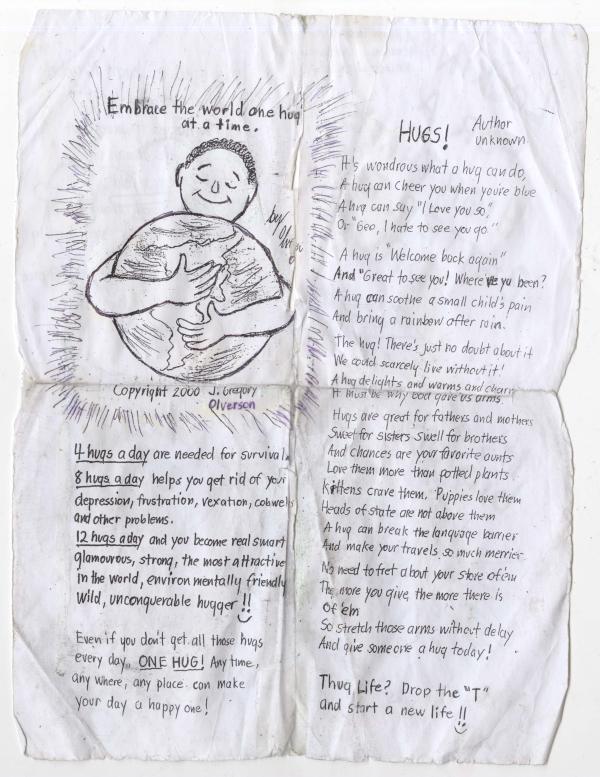 Embrace the world one hug
at a time.
by
Copyright 2000 J. Gregory
Olverson
4 hugs a day are needed for survival.
8 hugs a day helps you get rid of your
depression, frustration, vexation, cobwebs
and other problems.
12 hugs a day and you become real smart
glamourous, strong, the most attractive
in the world, environmentally friendly
wild, unconquerable hugger!!
Even if you don't get all those hugs
every day, ONE HUG! Any time,
any where, any place can make
your day a happy one!
HUGS!
Author
unknown
It's wondrous what a hug can do,
A hug can cheer you when you're blue
A hug can say "I Love you so,"
Or "Gee, I hate to see you go."
A hug is "Welcome back again"
And "Great to see you! Where ya been?
A hug can soothe a small child's pain
And bring a rainbow after rain.
The hug! There's just no doubt about it
We could scarcely live without it!
A hug delights and warms and charms
It must be why God gave us arms
Hugs are great for fathers and mothers
Sweet for sisters swell for brothers
And chances are your favorite aunts
Love them more than potted plants
Kittens crave them. Puppies love them
Heads of state are not above them
A hug can break the language barrier
And make your travels so much merrier
No need to fret about your store of em
The more you give, the more there is
of 'em
So stretch those arms without delay
And give someone a hug today!
Thug Life? Drop the "T"
and start a new life!!